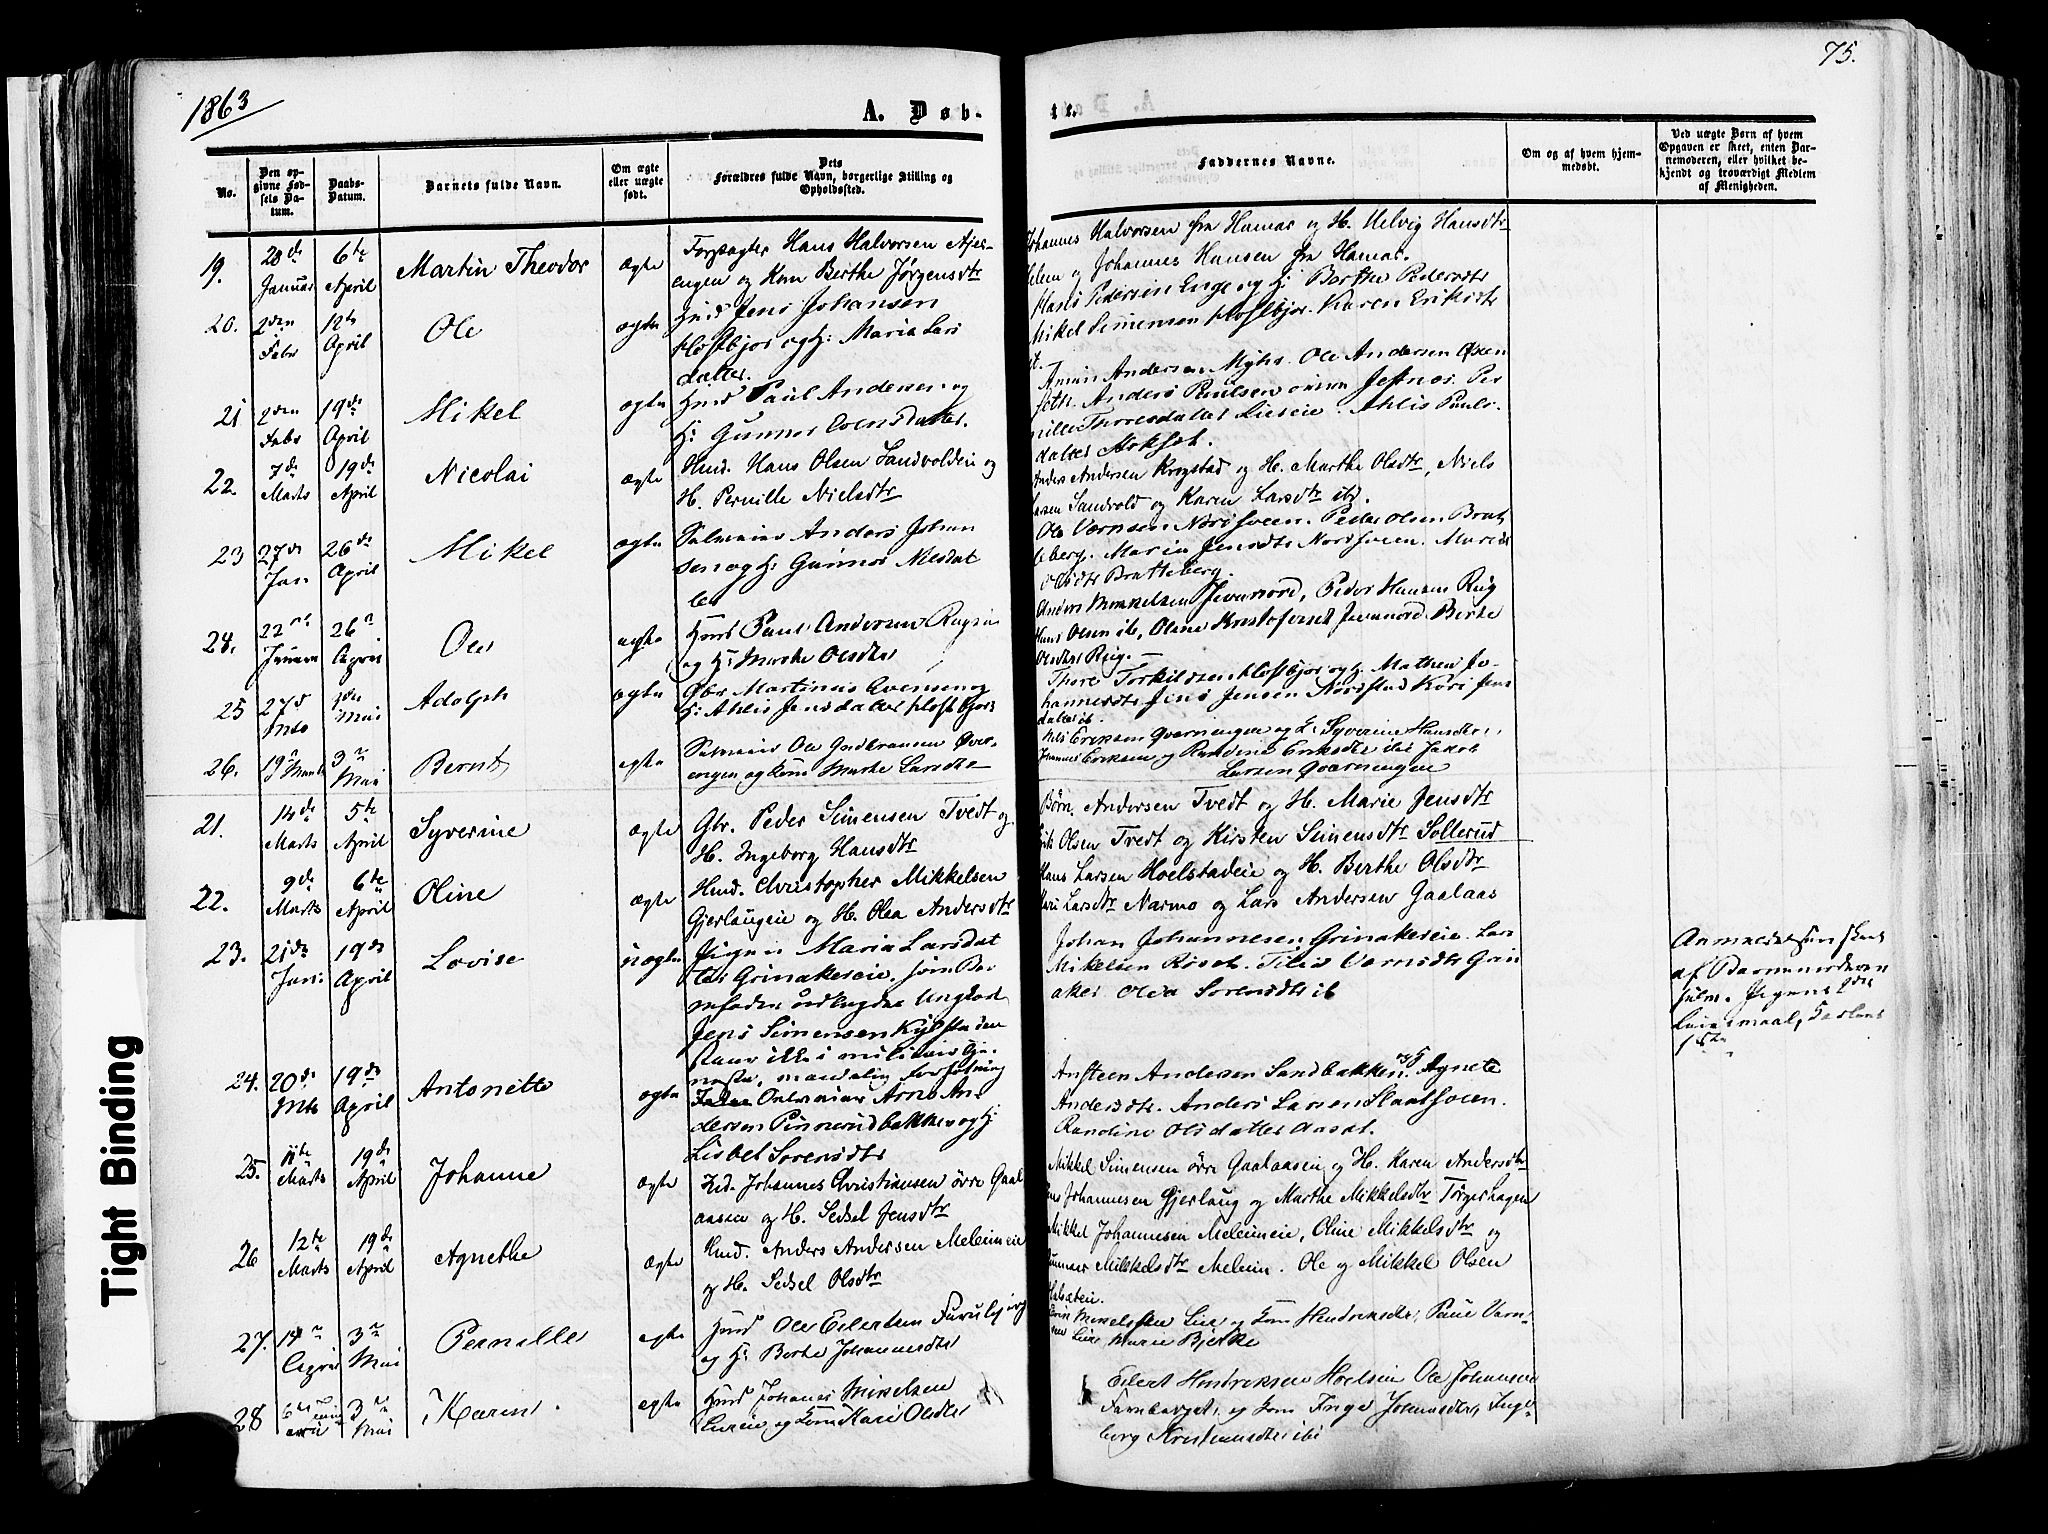 1863
A. Døb-
te.
75.
No.
Den opgivne Fødsels Datum.
Daabs-Datum.
Barnets fulde Navn.
Om ægte eller uægte født.
Dets Forældres fulde Navn, borgerlige Stilling og Opholdssted.
Faddernes Navne.
Om og af hvem hjemmedøbt.
Ved uægte Børn af hvem Opgaven er skeet, enten Barnemoderen, eller hvilket bekjendt og troværdigt Medlem af Menigheden.
19. 28de Januar 6te April Martin Theodor ægte
Hans Halvorsen Ajer-
engen og Kone Berthe Jørgensdtr
Johannes Halvorsen fra Hamar og H. Helvig Hansdtr
og Johannes Hansen fra Hamar.
20. 2den Febr 12te April Ole ægte
Husm Jens Johansen
Kloftbjor og H: Maria Lars
datter.
Pedersen Enge og H: Berthe Pedersdtr
Mikel Simensen Kloftbjor. Karen Eriksdtr
21 2den Febr 19de April Mikel ægte
Husm Paul Andersen og
H: Gunnor Evensdatter.
Andersen Myhr. Ole Andersen
Anders Paulsen
Thoresdatter Lieeie. Ahlis Pauls-
datter
22. 7de Marts 19de April Nicolai ægte
Husd. Hans Olsen Sandvolden og
H. Pernille Nielsdtr
Anders Andersen Krogstad og H. Marthe Olsdtr, Niels
Larsen Sandvold og Karen Larsdtr ibd.
23 27de Jan 26de April Mikel ægte
Selveier Anders Johan
sen og H: Gunnor Nilsdat
ter
Ole Nordsveen. Peder Olsen Brat
teberg. Maria Jensdtr Nordsveen. Mari
Olsdtr Bratteberg.
24. 22 Januar 26 April Ole ægte
Husd Paul Andersen
og H: Marthe Olsdtr
Anders Mikkelsen Jevanord, Peder Hansen Rug
Hans Olsen ib, Oline Kristofersdt Jevanord. Berthe
Olsdtr Rug. —
25 27d Mts 3die Mai Adolph ægte
Gbr. Martinus Evensen og
H: Ahlis Jensdatter Kloftbjor
Thore Torkildsen Kloftbjor og H. Mathea Jo-
hannesdtr Jens Jensen Nordstad Kari Jens
datter ib.
26. 19 Marts 3 Mai Bernt ægte
Selveier Ole Gulbransen Over-
engen og Kone Marthe Larsdtr
Eriksen Qværningen og H: Syverine Hansdtr,
Johannes Eriksen og Randine Eriksdtr ibd Jakob
Larsen Qværningen
21. 14de Marts 5te April Syverine ægte
Gbr. Peder Simensen Tvedt og
H. Ingeborg Hansdtr
Børn Andersen Tvedt og H. Marie Jensdtr
Erik Olsen Tvedt og Kirsten Simensdtr Sollerud
22. 9de Marts 6te April Oline ægte
Husd. Christopher Mikkelsen
Gjerlaugeie og H. Olea Andersdtr
Hans Larsen Hoelstadeie og H. Berthe Olsdtr
Kari Larsdtr Narmo og Lars Andersen Gaalaas
23. 21de Jan: 19de April Lovise uægte
Pigen Maria Larsdat
ter Grinakereie, som Bar
nefader udlagdes Ungkarl
Jens Simensen Kylstaden
staar ikke i militair tje-
neste,
Johan Johannesen Grinakereie. Lars
Mikelsen Røset.
aker Olea Sorensdtr ib
Anmeldelsen skeet
af Barnemoderen
selv. Pigens 2det
Leiermaal, Karlens
1ste
24. 20de Mts 19de April Antonette ægte
Selveier Arne An-
dersen Pinnerudbakken og H:
Lisbet Sorensdtr
Ansteen Andersen Sandbakken og Agnete
Andersdtr. Anders Larsen Slaatsveen.
Randine Olsdatter Aaset.
25. 11te Marts 19de April Johanne ægte
Led. Johannes Christiansen øvre Gaal
aasen og H. Sedsel Jensdtr
Mikkel Simensen øvre Gaalaasen og H. Karen Andersdtr
Johannesen Gjerlaug og Marthe Mikkelsdtr Torgershagen
26 12te Marts 19de April Agnethe ægte
Husd. Anders Andersen Meleimeie
og H. Sedsel Olsdtr
Mikkel Johannesen Meleimeie, Oline Mikkelsdtr og
Gunnor Mikkelsdtr Meleim. Ole og Mikkel Olsen
27. 14 April 3 Mai Pernille ægte
Husd Ole Eilertsen Furubjerg
og H: Berthe Johannesdtr
Mikelsen Lie og Kone Hendriksdtr, Paul
Lie, Marie Bjerke
28 6te 3 Mai Karen ægte
Husd Johanes Mikelsen
Lieeie, og Kone Kari Olsdtr
Eilert Hendriksen Hoelsen Ole Johansen
Furuberget, og Kone Inge Johannesdtr, Inge-
borg Kristiansdtr ibd
Tight Binding